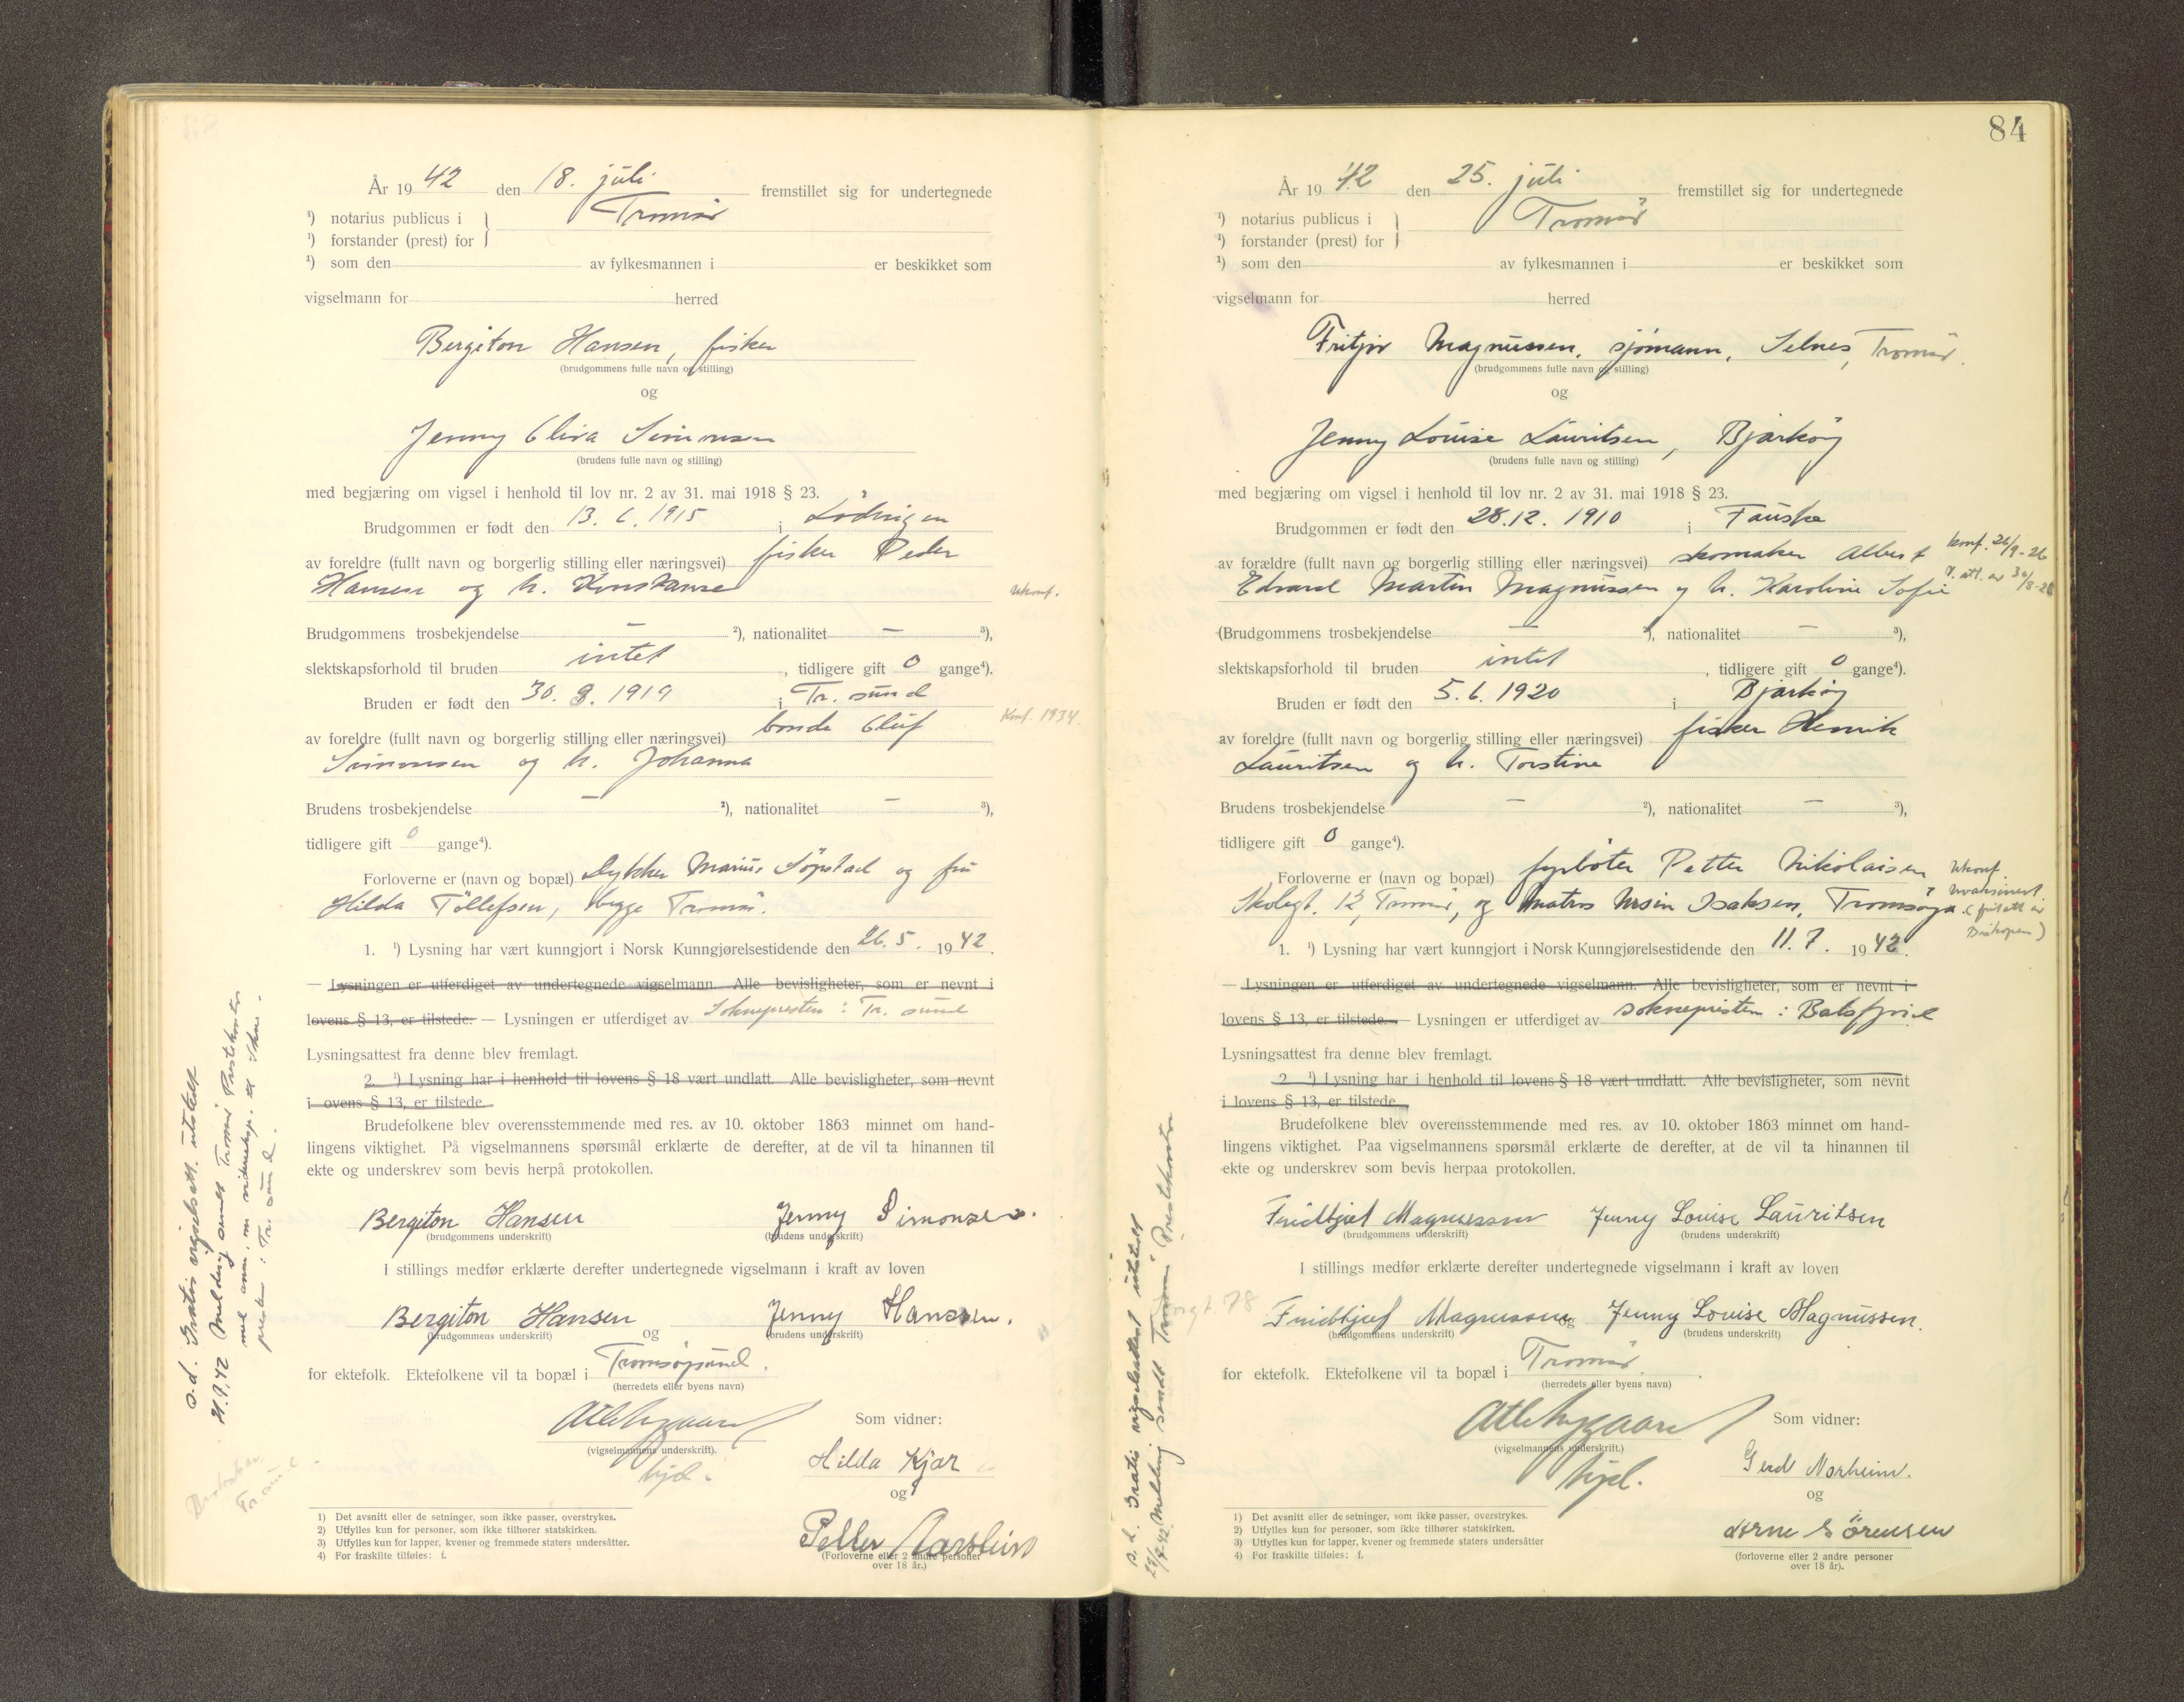 År 19 42 den 18. juli fremstillet sig for undertegnede
¹) notarius publicus i
Tromsø
¹) forstander (prest) for
¹) som den av fylkesmannen i er beskikket som
vigselmann for herred
Bergiton Hansen, fisker
(brudgommens fulle navn og stilling)
og
Jenny Oliva Simonsen
(brudens fulle navn og stilling)
med begjæring om vigsel i henhold til lov nr. 2 av 31. mai 1918 § 23.
Brudgommen er født den 13. 6. 1915 i Lødingen
av foreldre (fullt navn og borgerlig stilling eller næringsvei) fisker Peder
Hansen og h. Konstanse
ukonf.
Brudgommens trosbekjendelse — ²), nationalitet — ³),
slektskapsforhold til bruden intet, tidligere gift 0 gange⁴).
Bruden er født den 30. 8. 1919 i Tr. sund
Konf. 1934.
av foreldre (fullt navn og borgerlig stilling eller næringsvei) bonde Oluf
Simonsen og h. Johanna
Brudens trosbekjendelse — ²), nationalitet — ³),
tidligere gift 0 gange⁴).
Forloverne er (navn og bopæl) Dykker Marius Sørstad og fru
Hilda Tollefsen, begge Tromsø.
1. ¹) Lysning har vært kunngjort i Norsk Kunngjørelsestidende den 26. 5. 1942.
— Lysningen er utferdiget av undertegnede vigselmann. Alle bevisligheter, som er nevnt i
lovens § 13, er tilstede. — Lysningen er utferdiget av Soknepresten i Tr. sund
Lysningsattest fra denne blev fremlagt.
2. ¹) Lysning har i henhold til lovens § 18 vært undlatt. Alle bevisligheter, som nevnt
i ovens § 13, er tilstede
Brudefolkene blev overensstemmende med res. av 10. oktober 1863 minnet om hand-
lingens viktighet. På vigselmannens spørsmål erklærte de derefter, at de vil ta hinannen til
ekte og underskrev som bevis herpå protokollen.
Bergiton Hansen Jenny Simonsen.
(brudgommens underskrift) (brudens underskrift)
I stillings medfør erklærte derefter undertegnede vigselmann i kraft av loven
Bergiton Hansen og Jenny Hansen.
(brudgommens underskrift) (brudens underskrift)
for ektefolk. Ektefolkene vil ta bopæl i Tromsøysund.
(herredets eller byens navn)
Som vidner:
(vigselmannens underskrift).
Hilda Kjær
og
Petter Aarstein
(Forloverne eller 2 andre personer
over 18 år.)
1) Det avsnitt eller de setninger, som ikke passer, overstrykes.
2) Utfylles kun for personer, som ikke tilhører statskirken.
3) Utfylles kun for lapper, kvener og fremmede staters undersåtter.
4) For fraskilte tilføies: f.
s.d. Gratis vigselsatt. utstedt
21.9.42 Melding sendt Tromsø Prestekontor
84
År 19 42 den 25. juli fremstillet sig for undertegnede
¹) notarius publicus i
Tromsø
¹) forstander (prest) for
¹) som den av fylkesmannen i er beskikket som
vigselmann for herred
Fritjov Magnussen, sjømann, Selnes, Tromsø.
(brudgommens fulle navn og stilling)
og
Jenny Louise Lauritsen, Bjarkøy
(brudens fulle navn og stilling)
med begjæring om vigsel i henhold til lov nr. 2 av 31. mai 1918 § 23.
Brudgommen er født den 28.12. 1910 i Fauske
av forældre (fullt navn og borgerlig stilling eller næringsvei) skomaker Albert
Edvard Martin Magnussen og h. Karoline Sofie
konf. 26/9-26
(Brudgommens trosbekjendelse — ²), nationalitet — ³),
slektskapsforhold til bruden intet, tidligere gift 0 gange⁴).
Bruden er født den 5. 6. 1920 i Bjarkøy
av foreldre (fullt navn og borgerlig stilling eller næringsvei) fisker Henrik
Lauritsen og h. Torstine
Brudens trosbekjendelse — ²), nationalitet — ³),
tidligere gift 0 gange⁴).
Forloverne er (navn og bopæl) fyrbøter Petter Nikolaisen
Skolegt. 12, Tromsø, og matros Ursin Isaksen, Tromsøya.
Ukonf.
Uvaksinert.
1. ¹) Lysning har vært kunngjort i Norsk Kunngjørelsestidende den 11. 7. 1942.
— Lysningen er utferdiget av undertegnede vigselmann. Alle bevisligheter, som er nevnt i
lovens § 13, er tilstede. — Lysningen er utferdiget av soknepresten i Balsfjord
Lysningsattest fra denne blev fremlagt.
2 ¹) Lysning har i henhold til lovens § 18 vært undlatt. Alle bevisligheter, som nevnt
i lovens § 13, er tilstede.
Brudefolkene blev overensstemmende med res. av 10. oktober 1863 minnet om hand-
lingens viktighet. Paa vigselmannens spørsmål erklærte de derefter, at de vil ta hinannen til
ekte og underskrev som bevis herpaa protokollen.
Fridtjof Magnussen Jenny Louise Lauritsen
(brudgommens underskrift) (brudens underskrift)
I stillings medfør erklærte derefter undertegnede vigselmann i kraft av loven
Fridtjof Magnussen og Jenny Louise Magnussen.
(brudgommens underskrift) (brudens underskrift)
for ektefolk. Ektefolkene vil ta bopæl i Tromsø.
(herredets eller byens navn)
Som vidner:
(vigselmannens underskrift.)
Gerd Norheim.
og
Arne Sörensen
(forloverne eller 2 andre personer
over 18 år).
1) Det avsnitt eller de setninger, som ikke passer, overstrykes.
2) Utfylles kun for personer, som ikke tilhører statskirken.
3) Utfylles kun for lapper, kvener og fremmede staters undersåtter
4) For fraskilte tilføies: f.
s.d. Gratis vigselsattest utstedt
Melding sendt Tromsø Prestekontor